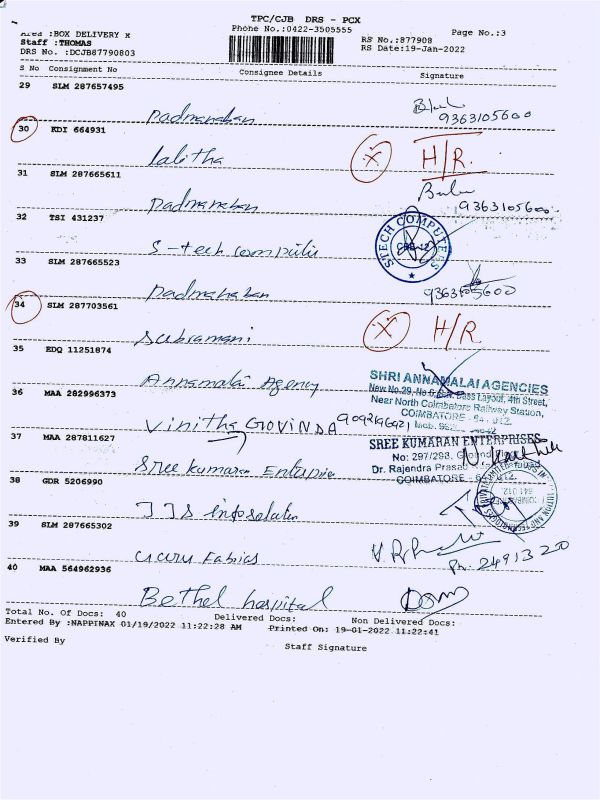 TPC/CJB DRS - PCX
Phone No.:0422-3505555
Page No.:3
Area :BOX DELIVERY x
Staff :THOMAS
DRS No. :DCJB87790803
RS No.:877908
RS Date:19-Jan-2022
S No Consignment No Consignee Details Signature
29 SLM 287657495
Padmanaban
9363105600
30 KDI 664931
Lalitha
H/R.
31 SLM 287665611
Padmanaban
9363105600
32 TSI 431237
S-tech
STECH COMPUTERS
33 SLM 287665523
Padmanaban
9363105600
34 SLM 287703561
Subramani
H/R
35 EDQ 11251874
Annamalai Agency
SHRI ANNAMALAI AGENCIES
Layout, 4th Street,
Near North Coimbatore Railway Station,
COIMBATORE
Mob.
36 MAA 282996373
Vinitha GOVINDA
37 MAA 287811627
Sree Kumaran
SREE KUMARAN ENTERPRISES
No: 297/298,
Dr. Rajendra Prasad
COIMBATORE
38 GDR 5206990
39 SLM 287665302
Guru Fabrics
Ph. 2491320
40 MAA 564962936
Bethel hospital
Total No. Of Docs: 40 Delivered Docs: Non Delivered Docs:
Entered By :NAPPINAX 01/19/2022 11:22:28 AM Printed On: 19-01-2022 11:22:41
Verified By
Staff Signature